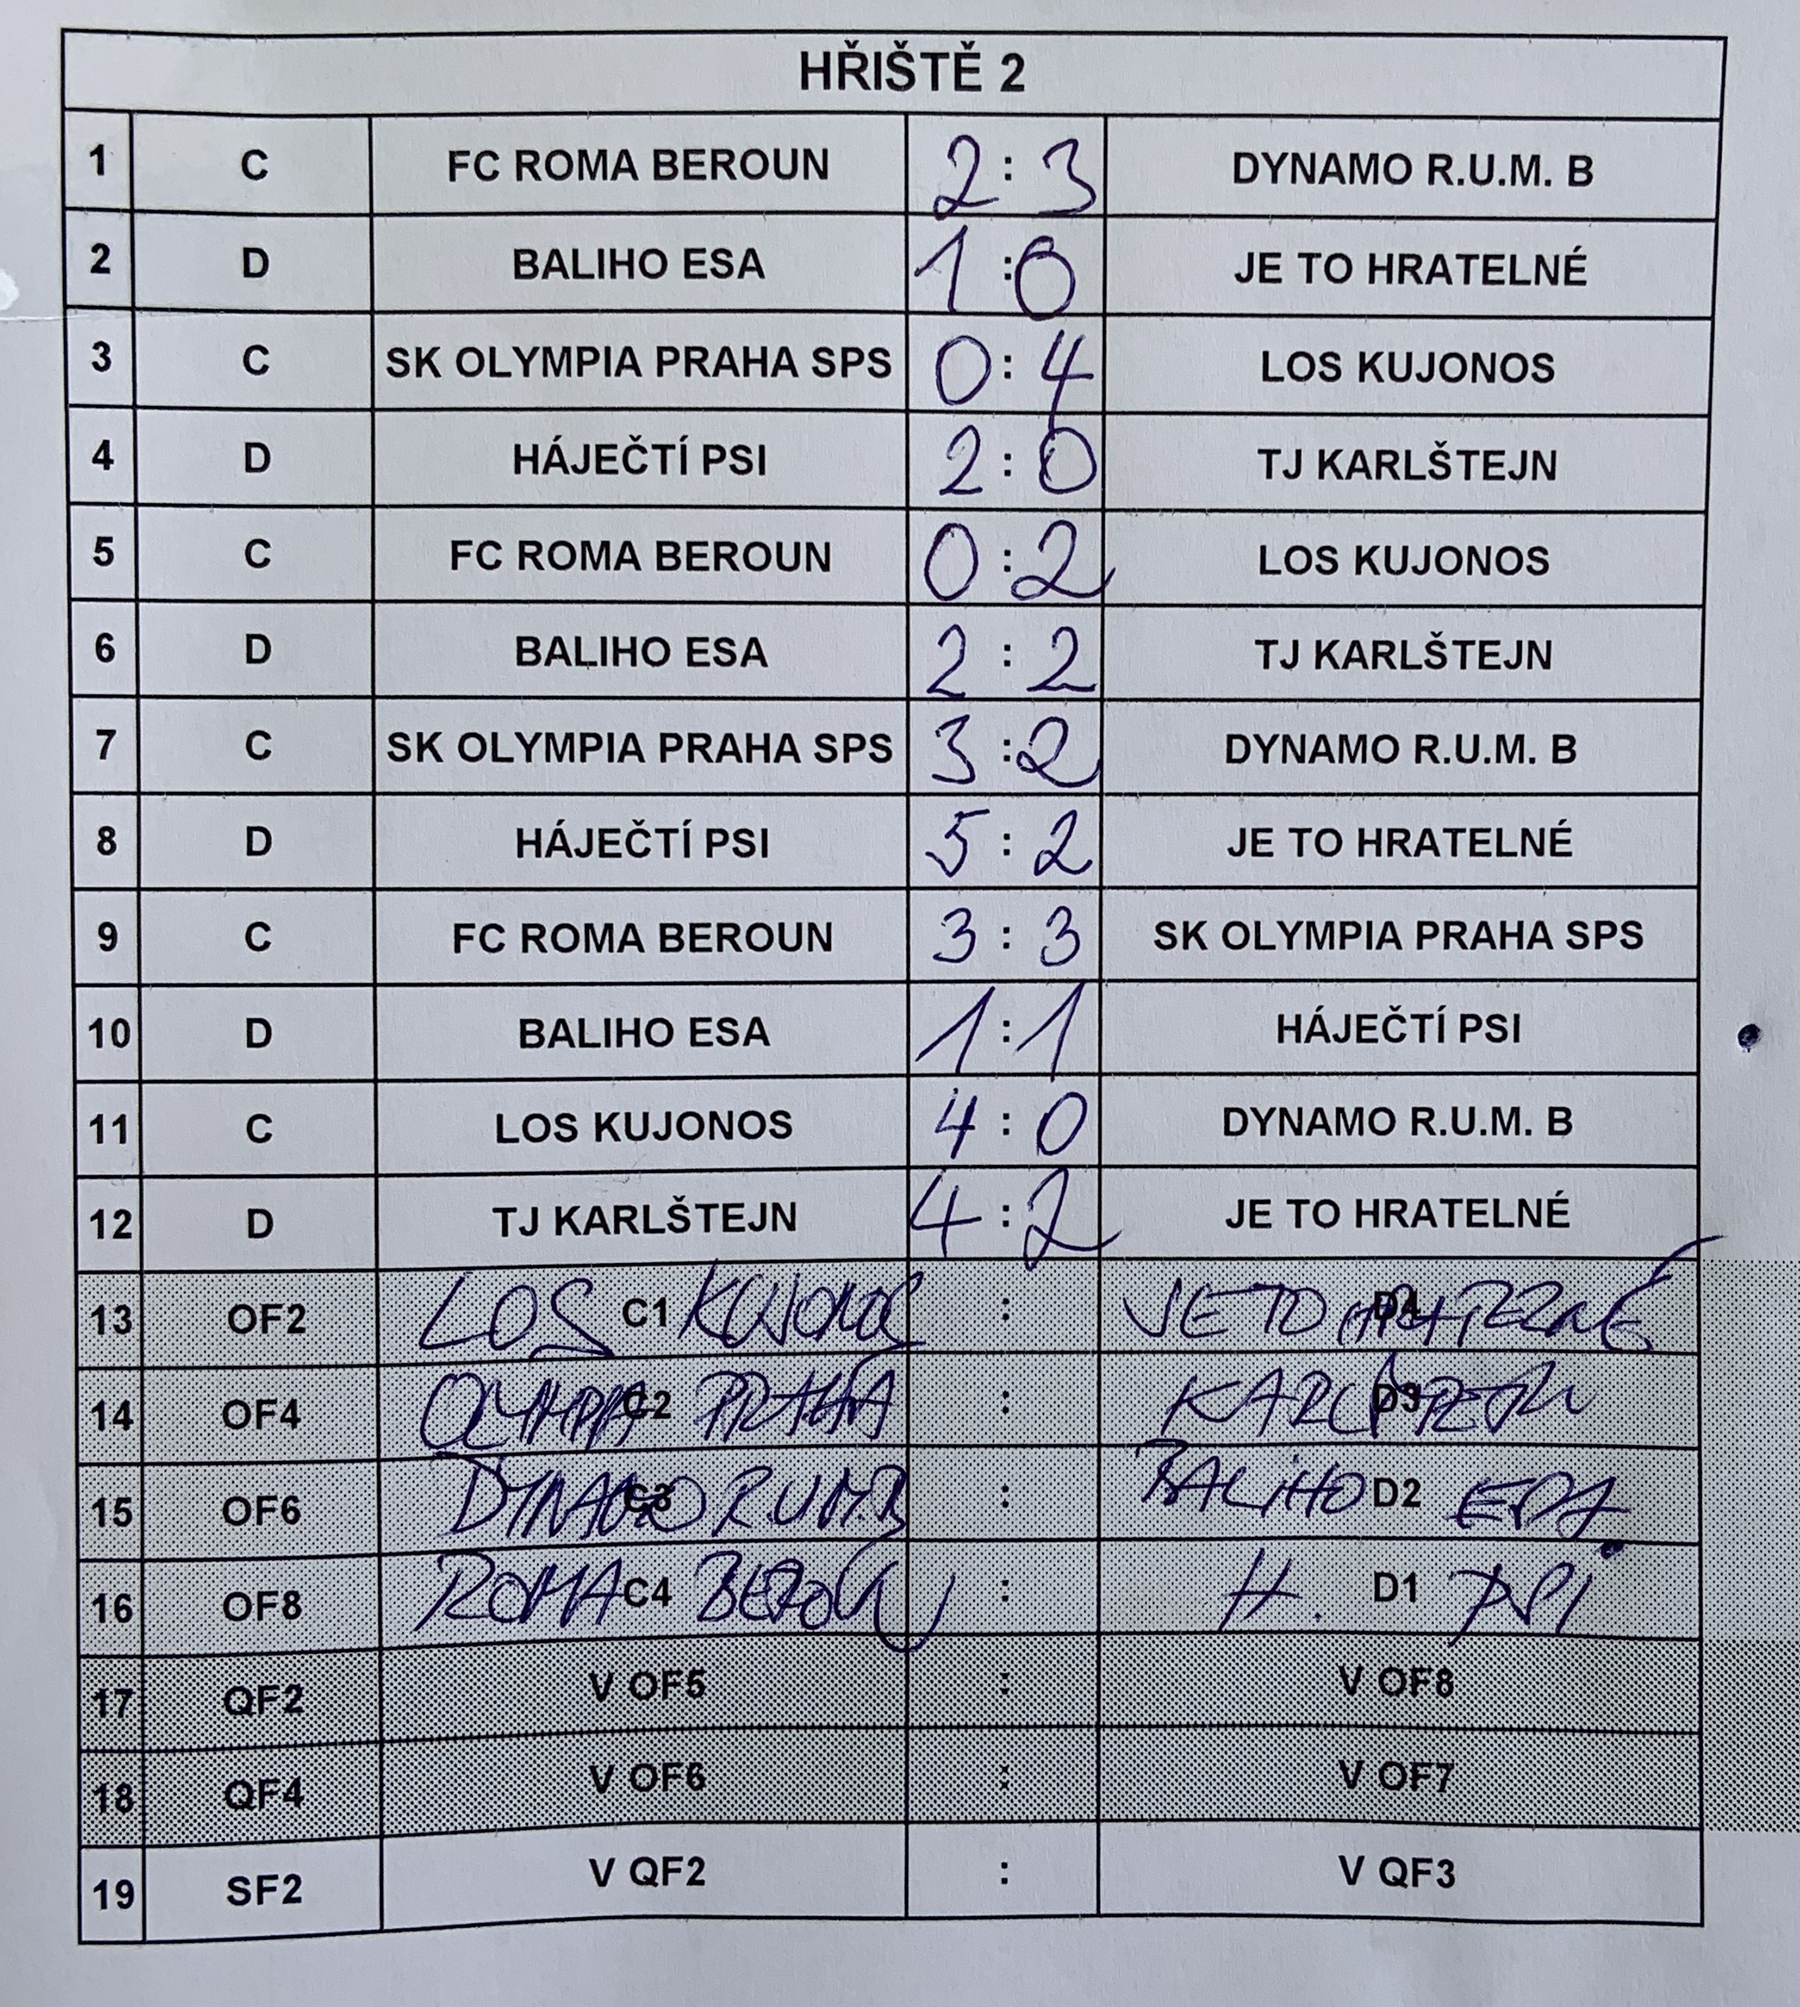 HŘIŠTĚ 2
1 C FC ROMA BEROUN 2 : 3 DYNAMO R.U.M. B
2 D BALIHO ESA 1 : 0 JE TO HRATELNÉ
3 C SK OLYMPIA PRAHA SPS 0 : 4 LOS KUJONOS
4 D HÁJEČTÍ PSI 2 : 0 TJ KARLŠTEJN
5 C FC ROMA BEROUN 0 : 2 LOS KUJONOS
6 D BALIHO ESA 2 : 2 TJ KARLŠTEJN
7 C SK OLYMPIA PRAHA SPS 3 : 2 DYNAMO R.U.M. B
8 D HÁJEČTÍ PSI 5 : 2 JE TO HRATELNÉ
9 C FC ROMA BEROUN 3 : 3 SK OLYMPIA PRAHA SPS
10 D BALIHO ESA 1 : 1 HÁJEČTÍ PSI
11 C LOS KUJONOS 4 : 0 DYNAMO R.U.M. B
12 D TJ KARLŠTEJN 4 : 2 JE TO HRATELNÉ
13 OF2 LOS C1 KUJONOS : JE TO D4 HRATELNÉ
14 OF4 OLYMPIA C2 PRAHA : KARLŠTEJN D3
15 OF6 DYNAMO C3 R.U.M.B : BALIHO D2 ESA
16 OF8 ROMA C4 BEROUN : H. D1 PSI
17 QF2 V OF5 : V OF8
18 QF4 V OF6 : V OF7
19 SF2 V QF2 : V QF3